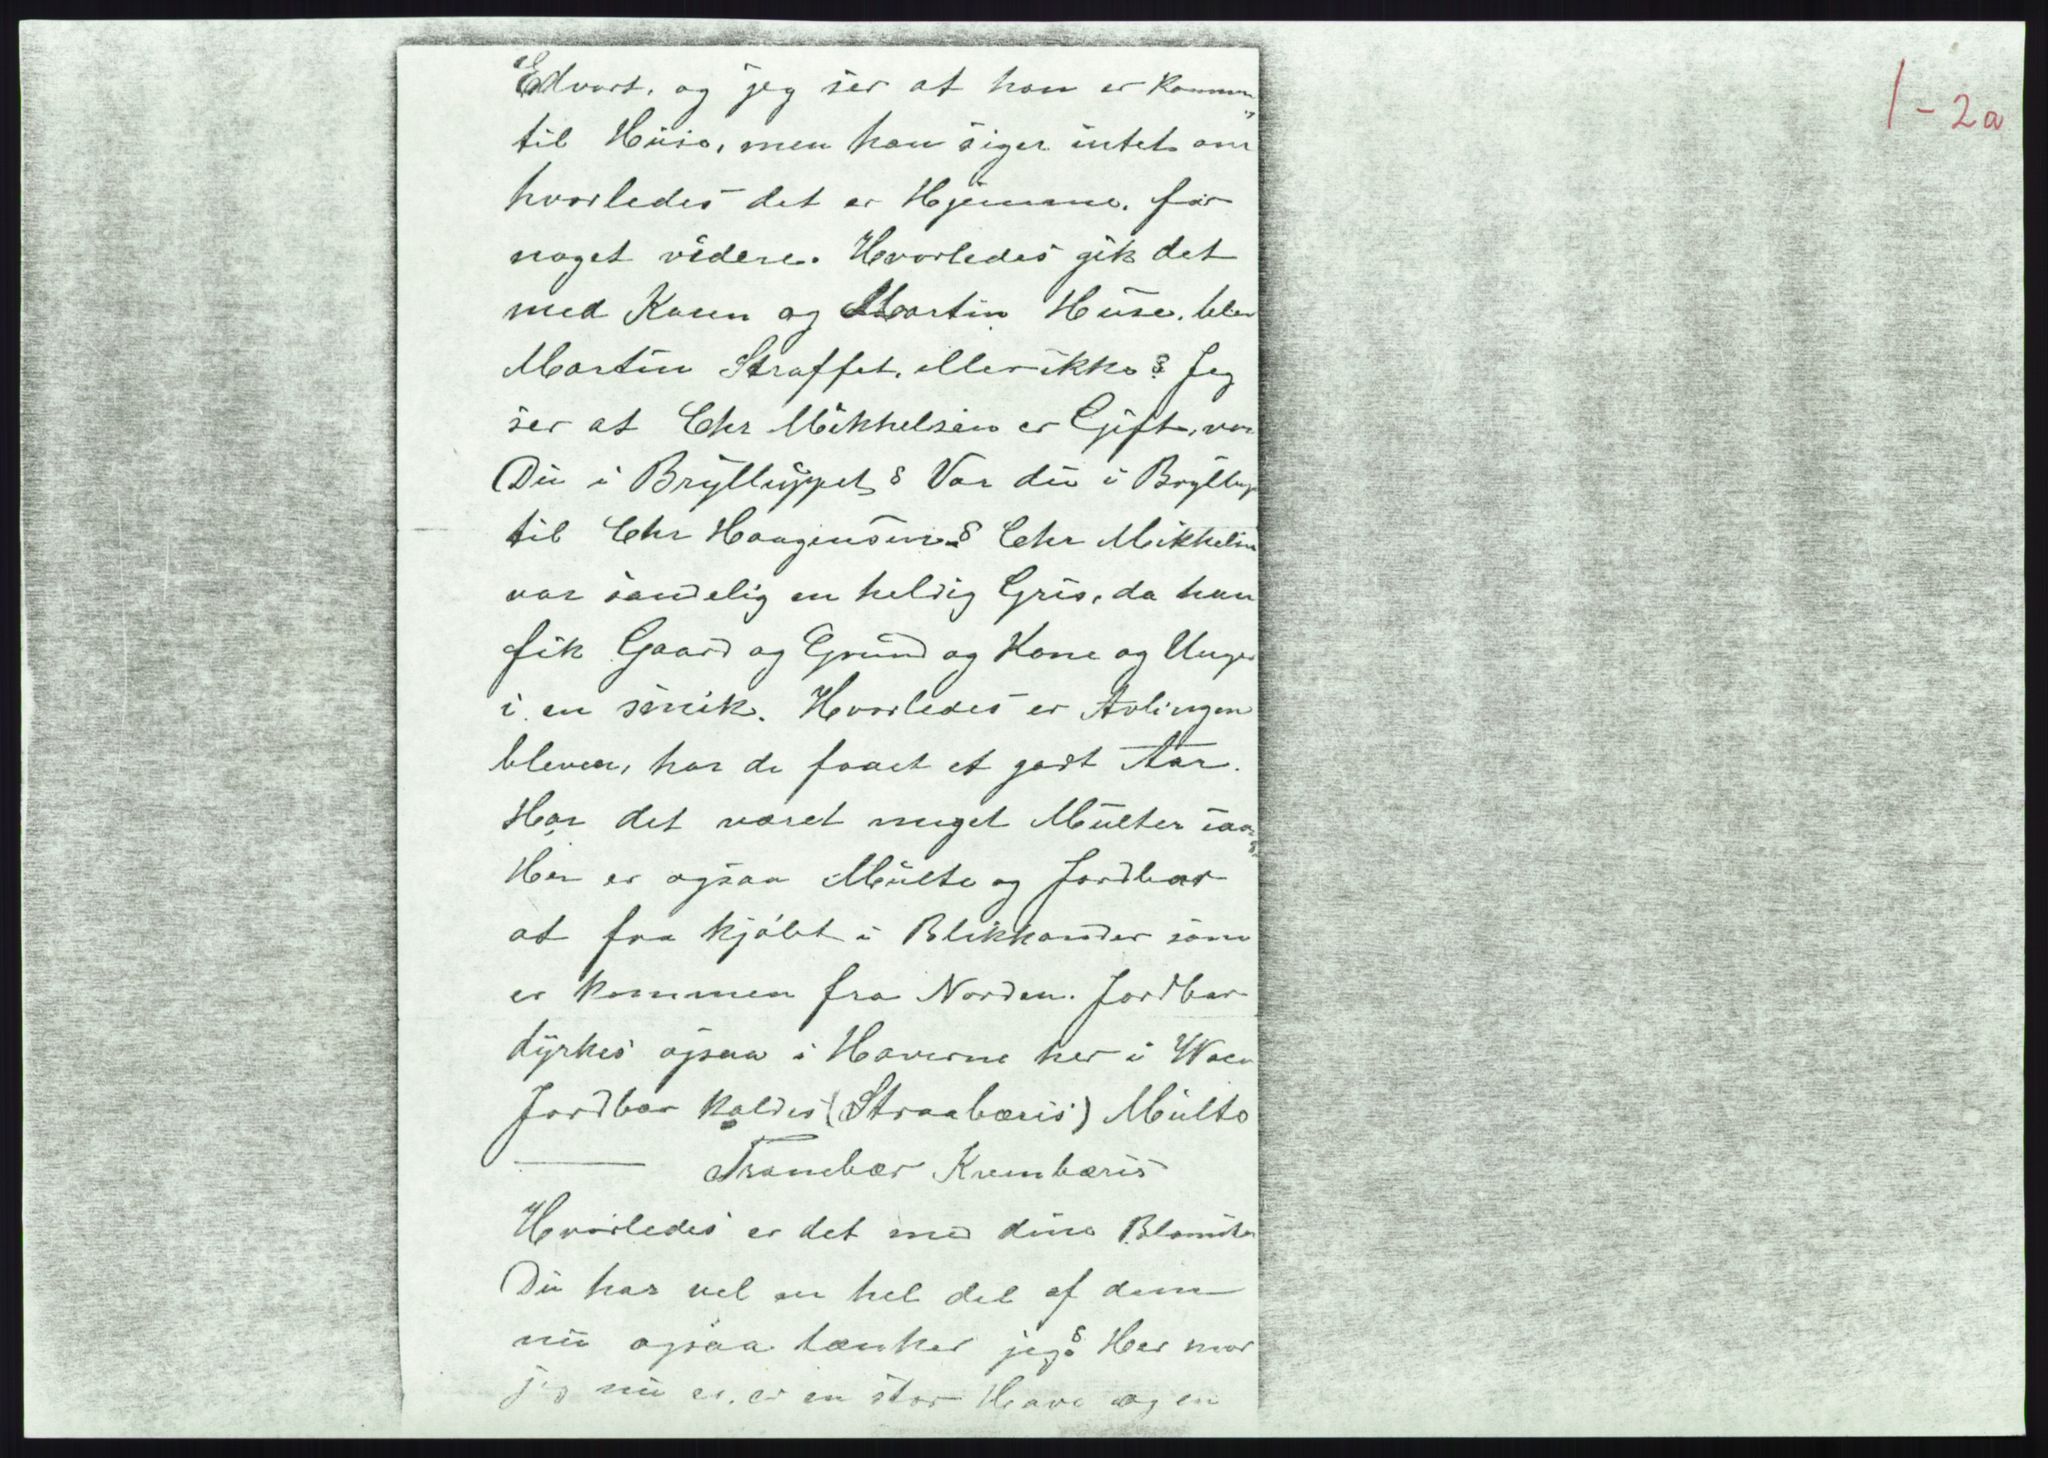 1-2a
Edvart, og jeg ser at han er kommen
til Huse, men han siger intet om
hvorledes det er Hjemme. før
noget videre. Hvorledes gik det
med Karen og Martin Huse. blev
Martin Straffet, eller ikke? Jeg
ser at Chr Mikkelsen er Gift, var
Du i Brylluppet? Var du i Bryllup
til Chr Haagensen? Chr Mikkelsen
var sandelig en heldig Gris, da han
fik Gaard og Grund og Kone og Unger
i en smæk. Hvorledes er Avlingen
bleven, har de faaet et godt Aar.
Har det været meget Multer iaar?
Her er ogsaa Multe og Jordbær
at faa kjøbt i Blikkander som
er kommen fra Norden. Jordbær
dyrkes ogsaa i Haverne her i Waco
Jordbær kaldes (Straabæris) Multe
Tranebær Krembæris
Hvorledes er det med dine Blomster
Du har vel en hel del af dem
nu ogsaa tænker jeg? Her hvor
jeg nu er, er en stor Have og en